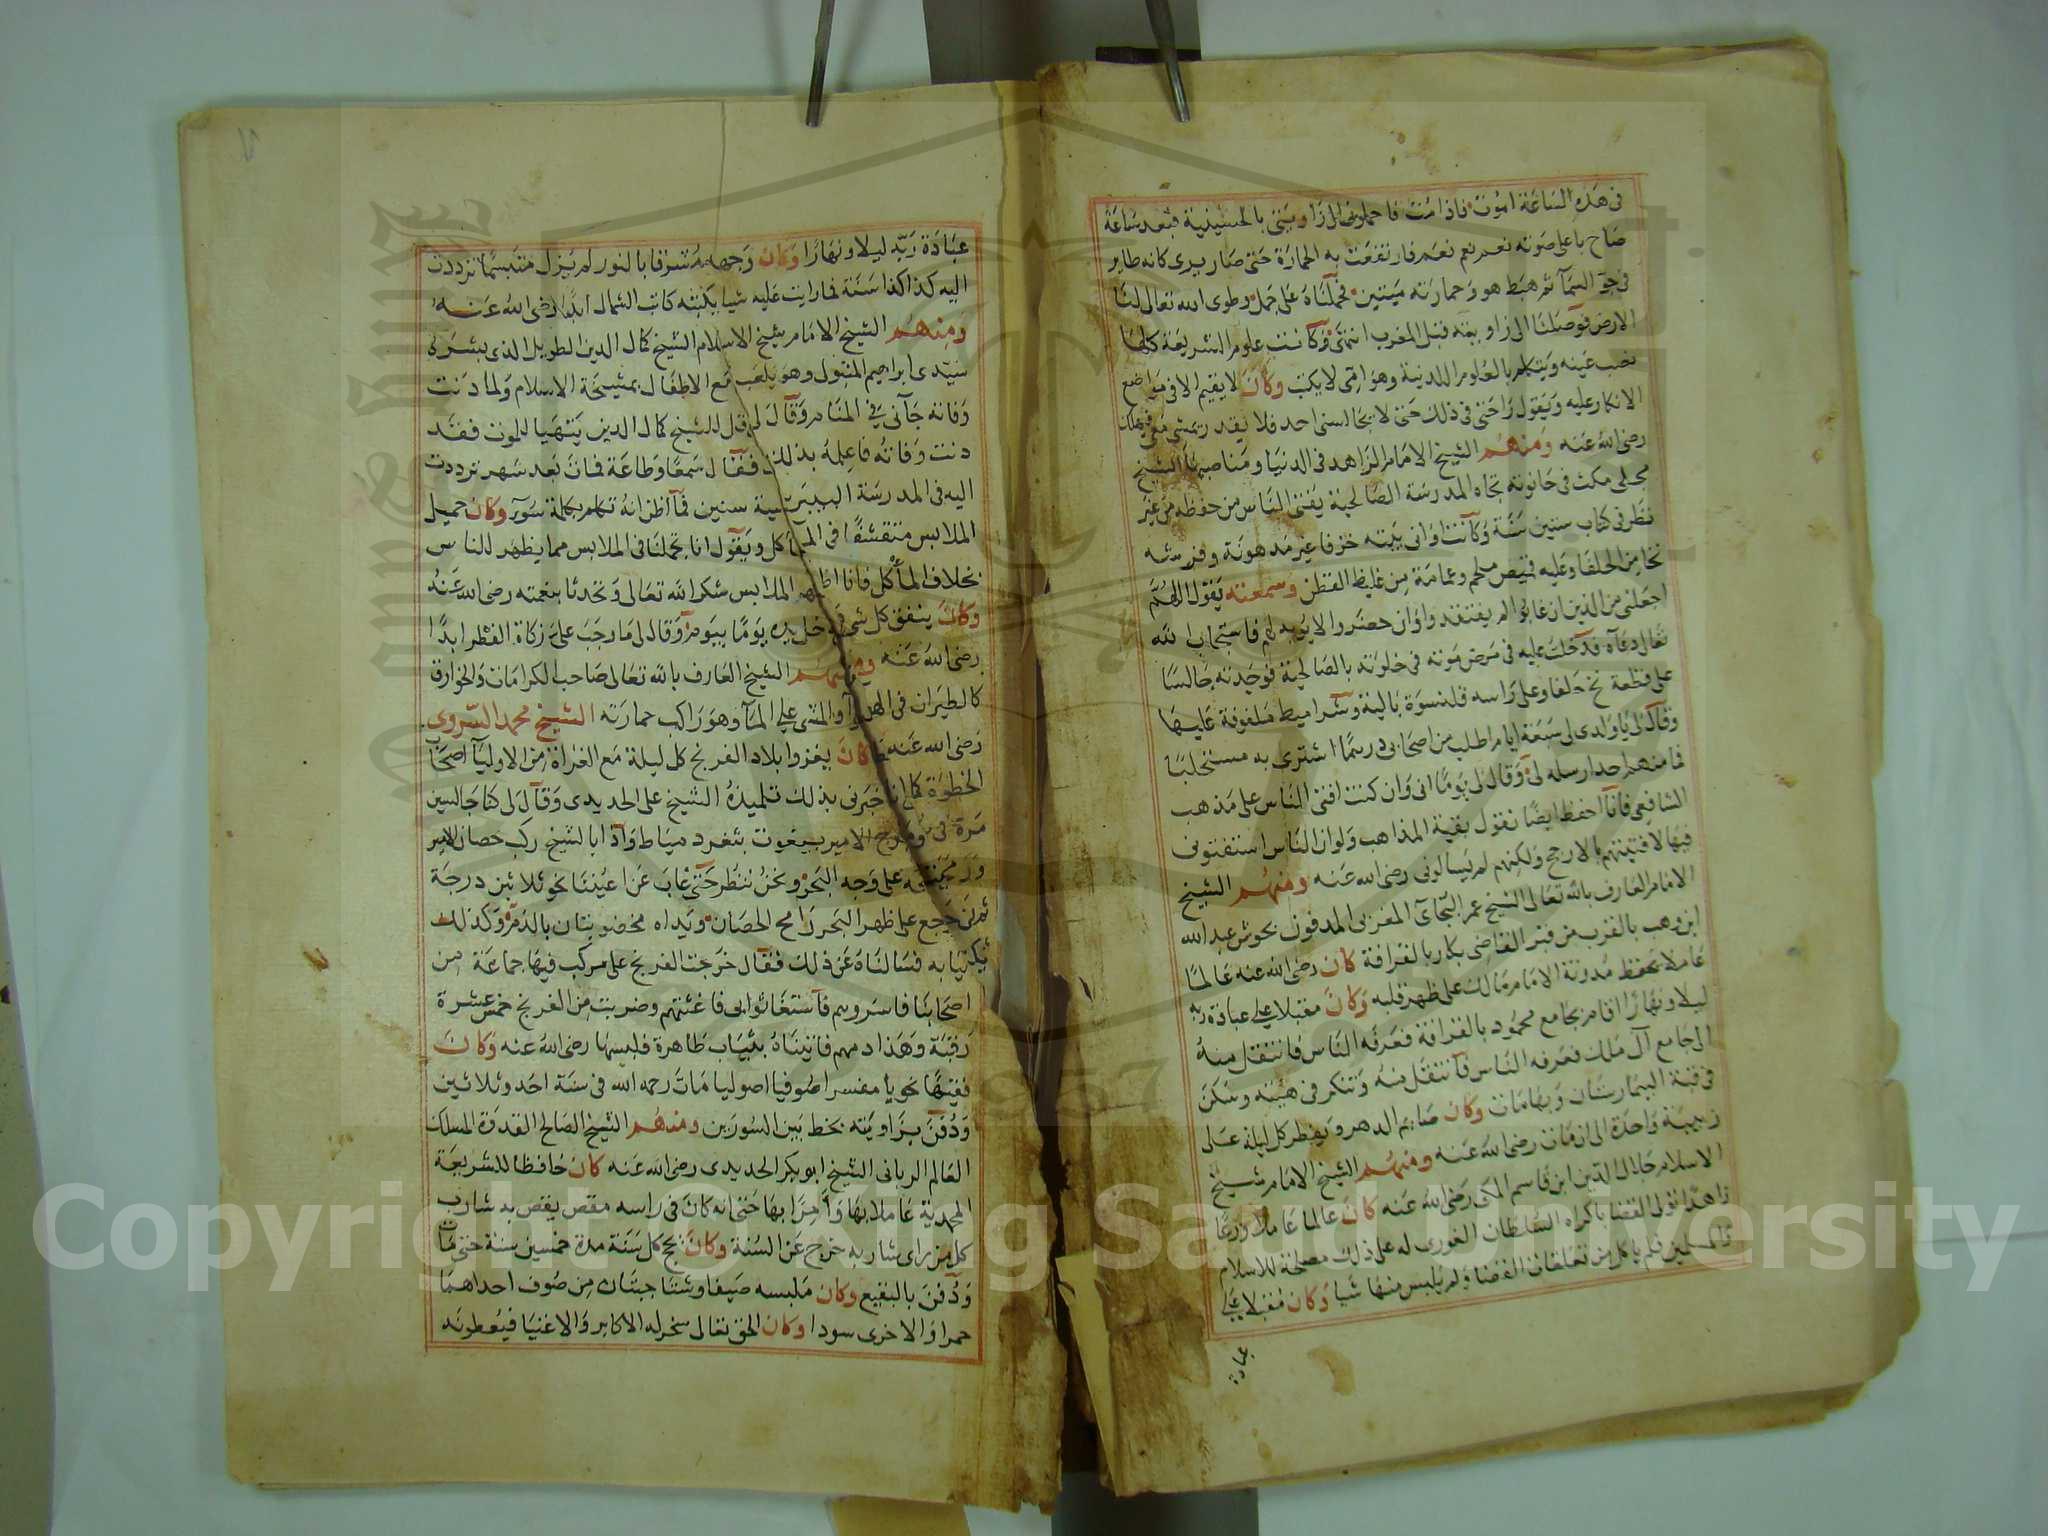 في هذه الساعة اموت فاذا مت فاحملوني الى زاويتي بالحسينية فبعد ساعة
صاح باعلى صوته نعم نعم نعم فارتفعت به الحمارة حتى صار يرى كانه طاير
في جو السمآ ثم هبط هو وحمارته ميتين فحملناه على جمل وطوى الله تعالى لنا
الارض فوصلنا الى زاويته قبل المغرب انتهى وكانت علوم الشريعة كلها
نصب عينه ويتكلم بالعلوم اللدنية وهو امي لا يكتب وكان لا يقيم الا في مواضع
الانكار عليه ويقول راحتي في ذلك حتى لا يجالسني احد فلا يقدر يمشي معي
رضى الله عنه ومنهم الشيخ الامام الزاهد في الدنيا ومناصبها الشيخ
محلي مكث في حانوته تجاه المدرسة الصالحية يفتي الناس من حفظه من غير
نظر في كتاب ستين سنة وكانت اواني بيته خزفا غير مدهونة وفرشه
نخا من الحلفا وعليه قميص ملحم وعمامة من غليظ القطن وسمعته يقول اللهم
اجعلني من الذين ان غابوا لم يفتقدوا وان حضروا لا يوبه لهم فاستجاب الله
تعالى دعآه فدخلت عليه في مرض موته في خلوته بالصالحية فوجدته جالسا
على قطعة نخ حلفا وعلى راسه قلنسوة بالية وشراميط ملفوفة عليها
وقال لى يا ولدى لى سبعة ايام اطلب من اصحابى درهما اشترى به مستحلبا
فما منهم احد ارسله لى وقال لى يوما انى وان كنت افتى الناس على مذهب
الشافعى فانآ احفظ ايضا نقول بقية المذاهب ولو ان الناس استفتونى
فيها لافتيتهم بالارجح ولكنهم لم يسالونى رضى الله عنه ومنهم الشيخ
الامام العارف بالله تعالى الشيخ عمر البجآى المغربى المدفون بحوش عبد الله
ابن وهب بالقرب من قبر القاضى بكار بالقرافة كان رضى الله عنه عالما
عاملا يحفظ مدونة الامام مالك على ظهر قلبه وكان مقبلا على عبادة ربه
ليلا ونهارا اقام بجامع محمود بالقرافة فعرفه الناس فانتقل منه
الى جامع آل ملك فعرفه الناس فانتقل منه وتنكر فى هيئته وسكن
فى قبة البيمارستان وبها مات وكان صايم الدهر ويفطر كل ليلة على
زبيبة واحدة الى ان مات رضى الله عنه ومنهم الشيخ الامام شيخ
الاسلام جلال الدين ابن قاسم المالكى رضى الله عنه كان عالما عاملا ورعا
زاهدا تولى القضا باكراه السلطان الغورى له على ذلك مصلحة للاسلام
والمسلمين فلم ياكل من تعلقات القضا ولم يلبس منها شيا وكان مقبلا على
عبادة
عبادة ربه ليلا ونهارا وكان وجهه مشرقا بالنور لم يزل متبسما ترددت
اليه كذا كذا سنة فما رايت عليه شيا يكتبه كاتب الشمال ابدا رضى الله عنه
ومنهم الشيخ الامام شيخ الاسلام الشيخ كمال الدين الطويل الذى بشره
سيدى ابراهيم المتبولى وهو يلعب مع الاطفال بمشيخة الاسلام ولما دنت
وفاته جآنى فى المنام وقال لى قل للشيخ كمال الدين يتهيا للموت فقد
دنت وفاته فاعلمه بذلك فقال سمعا وطاعة فمات بعد شهر ترددت
اليه فى المدرسة البيبرسية سنين فمآ اظن انه تكلم بكلمة سوء وكان جميل
الملابس متقشفا فى المآكل ويقول انا تجملنا فى الملابس مما يظهر للناس
بخلاف المأكل فانا اظهر الملابس شكر الله تعالى وتحدثا بنعمته رضى الله عنه
وكان ينفق كل شى دخل يده يوما بيوم وقال لى ما وجب على زكاة الفطر ابدا
رضى الله عنه ومنهم الشيخ العارف بالله تعالى صاحب الكرامات والخوارق
كالطيران فى الهوآ والمشى على المآ وهو راكب حمارته الشيخ محمد السروى
رضى الله عنه كان يغزوا بلاد الفرنج كل ليلة مع الغزاة من الاوليآ اصحاب
الخطوة كما اخبرنى بذلك تلميذه الشيخ على الحديدى وقال لى كنا جالسين
مرة فى برج الامير بيغوت بثغر دمياط واذا بالشيخ ركب حصان الامير
ورمح به على وجه البحر ونحن ننظر حتى غاب عن اعيننا نحو ثلاثين درجة
ثم رجع على ظهر البحر رامح الحصان ويداه مخضوبتان بالدم وكذلك
ثيابه فسالناه عن ذلك فقال خرجت الفرنج على مركب فيها جماعة من
اصحابنا فاسروهم فاستغاثوا بى فاغثتهم وضربت من الفرنج خمس عشرة
رقبة وهذا دمهم فاتيناه بثياب طاهرة فلبسها رضى الله عنه وكان
فقيها نحويا مفسرا صوفيا اصوليا مات رحمه الله فى سنة احد وثلاثين
ودفن بزاويته بخط بين السورين ومنهم الشيخ الصالح القدوة المسلك
العالم الربانى الشيخ ابو بكر الحديدى رضى الله عنه كان حافظا للشريعة
المحمدية عاملا بها وآمرا بها حتى انه كان فى راسه مقص يقص به شارب
كل من راى شاربه خرج عن السنة وكان يحج كل سنة مدة خمسين سنة حتى مات
ودفن بالبقيع وكان ملبسه صيفا وشتا جبتان من صوف احداهما
حمرا والاخرى سودا وكان الحق تعالى سخر له الاكابر والاغنيا فيعطونه
Copyright © King Saud University
1957